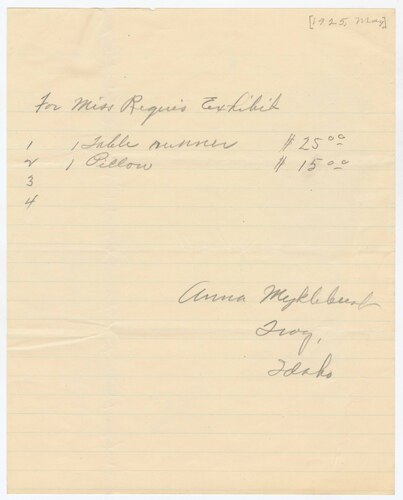 [1925, May]
For Miss Reque's Exhibit
1 1 Table runner $ 25.00
2 1 Pillow $ 15.00
3
4
Anna Myklebust
Troy,
Idaho